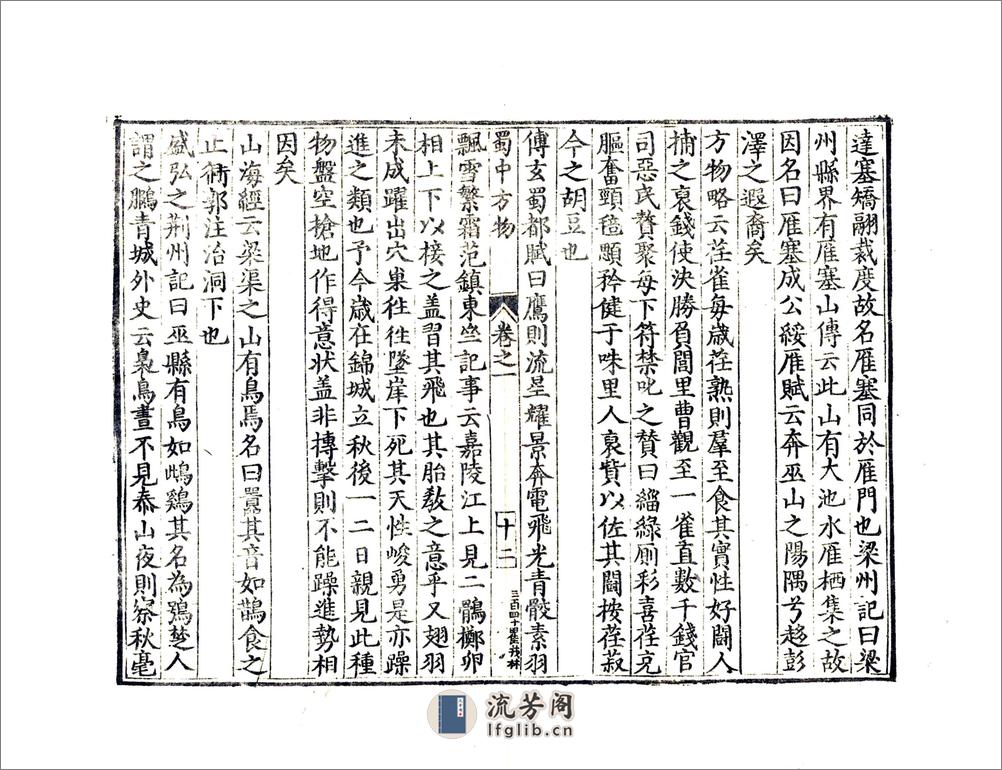 達塞矯翮裁度故名雁塞同於雁門也梁州記曰梁
州縣界有雁塞山傳云此山有大池水雁栖集之故
因名曰雁塞成公綏雁賦云奔巫山之陽隅兮趍彭
澤之遐裔矣
方物略云荏雀每歲荏熟則羣至食其實性好鬪人
捕之裒錢使決勝負閭里曹觀至一雀直數千錢官
司惡民贅聚每下符禁叱之贊曰緇綠厠彩喜荏充
軀奮頸毰顋矜健于咮里人裒貲以佐其鬪按荏菽
今之胡豆也
傅玄蜀都賦曰鷹則流星耀景奔電飛光青骹素羽
蜀中方物 卷之一 十二
飄雪繁霜范鎮東坐記事云嘉陵江上見二鶻擲卵
相上下以接之盖習其飛也其胎敎之意乎又翅羽
未成躍出穴巢徃徃墜崖下死其天性峻勇是亦躁
進之類也予今歲在錦城立秋後一二日親見此種
物盤空搶地作得意状盖非摶擊則不能躁進勢相
因矣
山海經云梁渠之山有鳥焉名曰囂其音如鵲食之
止衕郭注治洞下也
盛弘之荆州記曰巫縣有鳥如雌鷄其名為鴞楚人
謂之鵩青城外史云梟鳥晝不見泰山夜則察秋毫
流芳阁
lfglib.cn